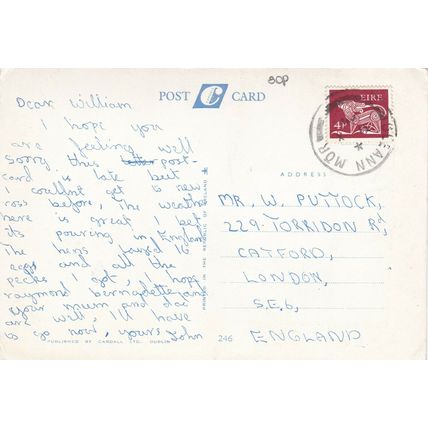 80P
POST CARD
EIRE
4P
ANN MOR
Dear William
I hope you
are feeling well
Sorry this letter post-
card is late but
I couldnt get to new
ross before, The weather
here is great I bet
its pouring in England
The hens layed 16
eggs and all the
pecks I got, I hope
raymond bernadette and
your mum and dad
are well, I'll have
to go now, yours John
ADDRESS
MR. W. PUTTOCK,
229. TORRIDON Rd,
CATFORD,
LONDON,
S.E.6,
ENGLAND
PRINTED IN THE REPUBLIC OF IRELAND
PUBLISHED BY CARDALL LTD. DUBLIN
246